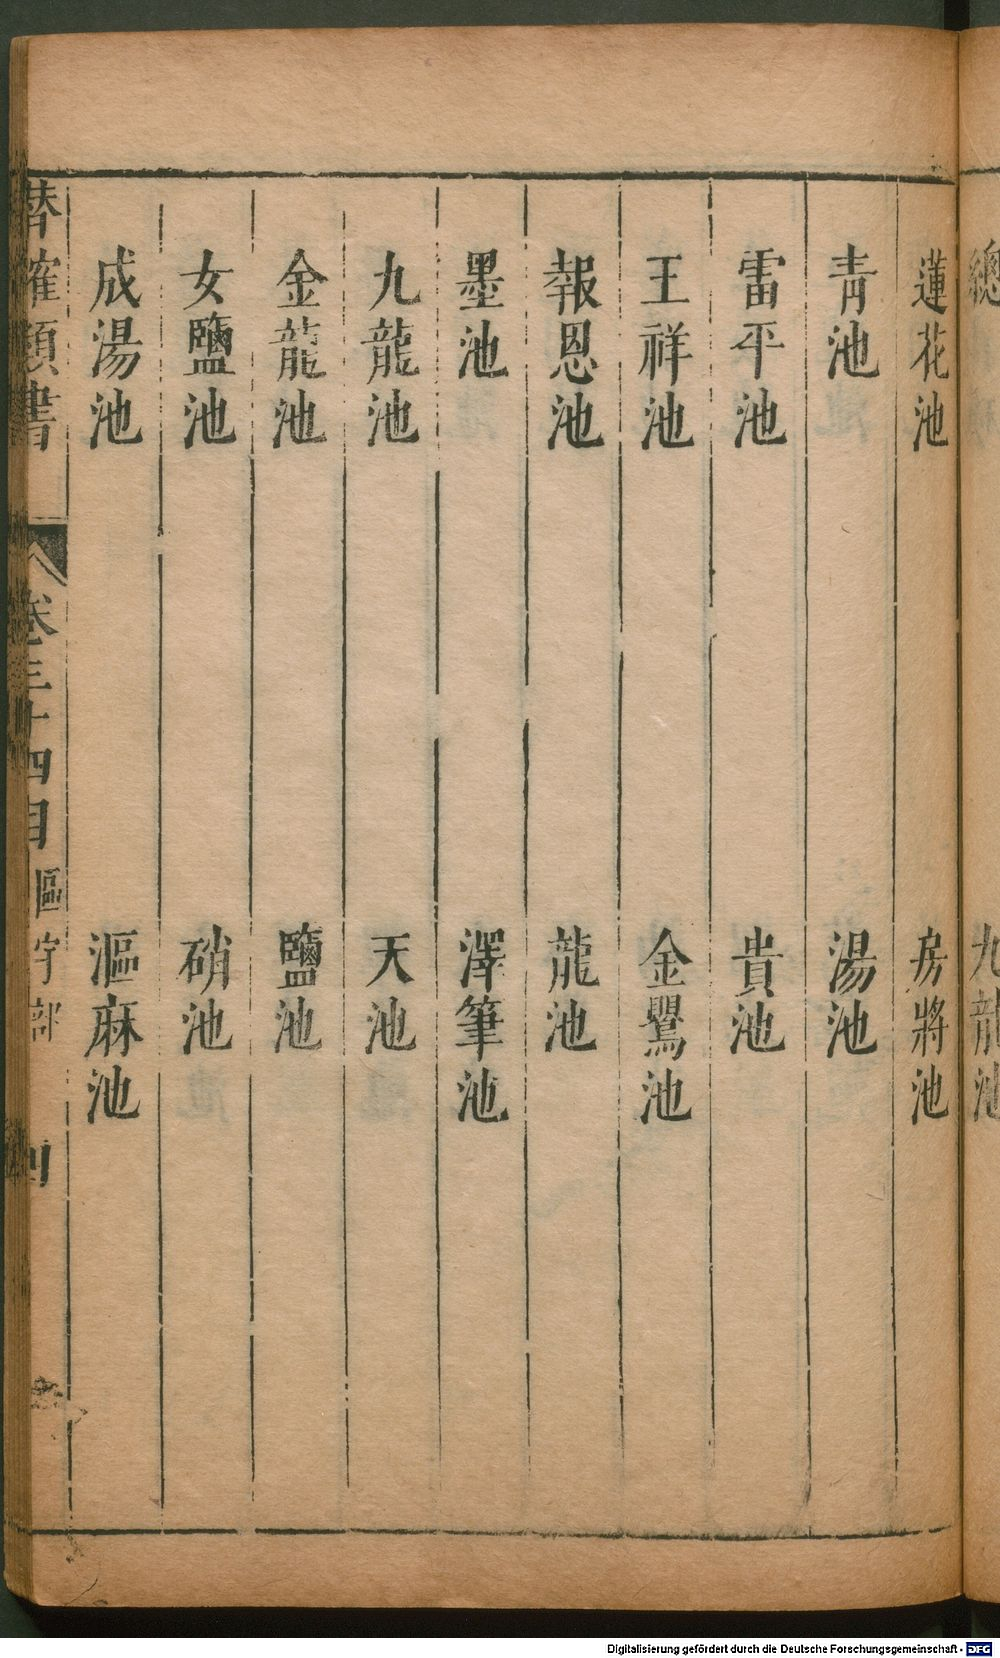 蓮花池 房將池
青池 湯池
雷平池 貴池
王祥池 金鸎池
報恩池 龍池
墨池 澤筆池
九龍池 天池
金龍池 鹽池
女鹽池 硝池
成湯池 漚麻池
潛確類書 卷三十四目 區宇部 四
九龍池
Digitalisierung gefördert durch die Deutsche Forschungsgemeinschaft - DFG